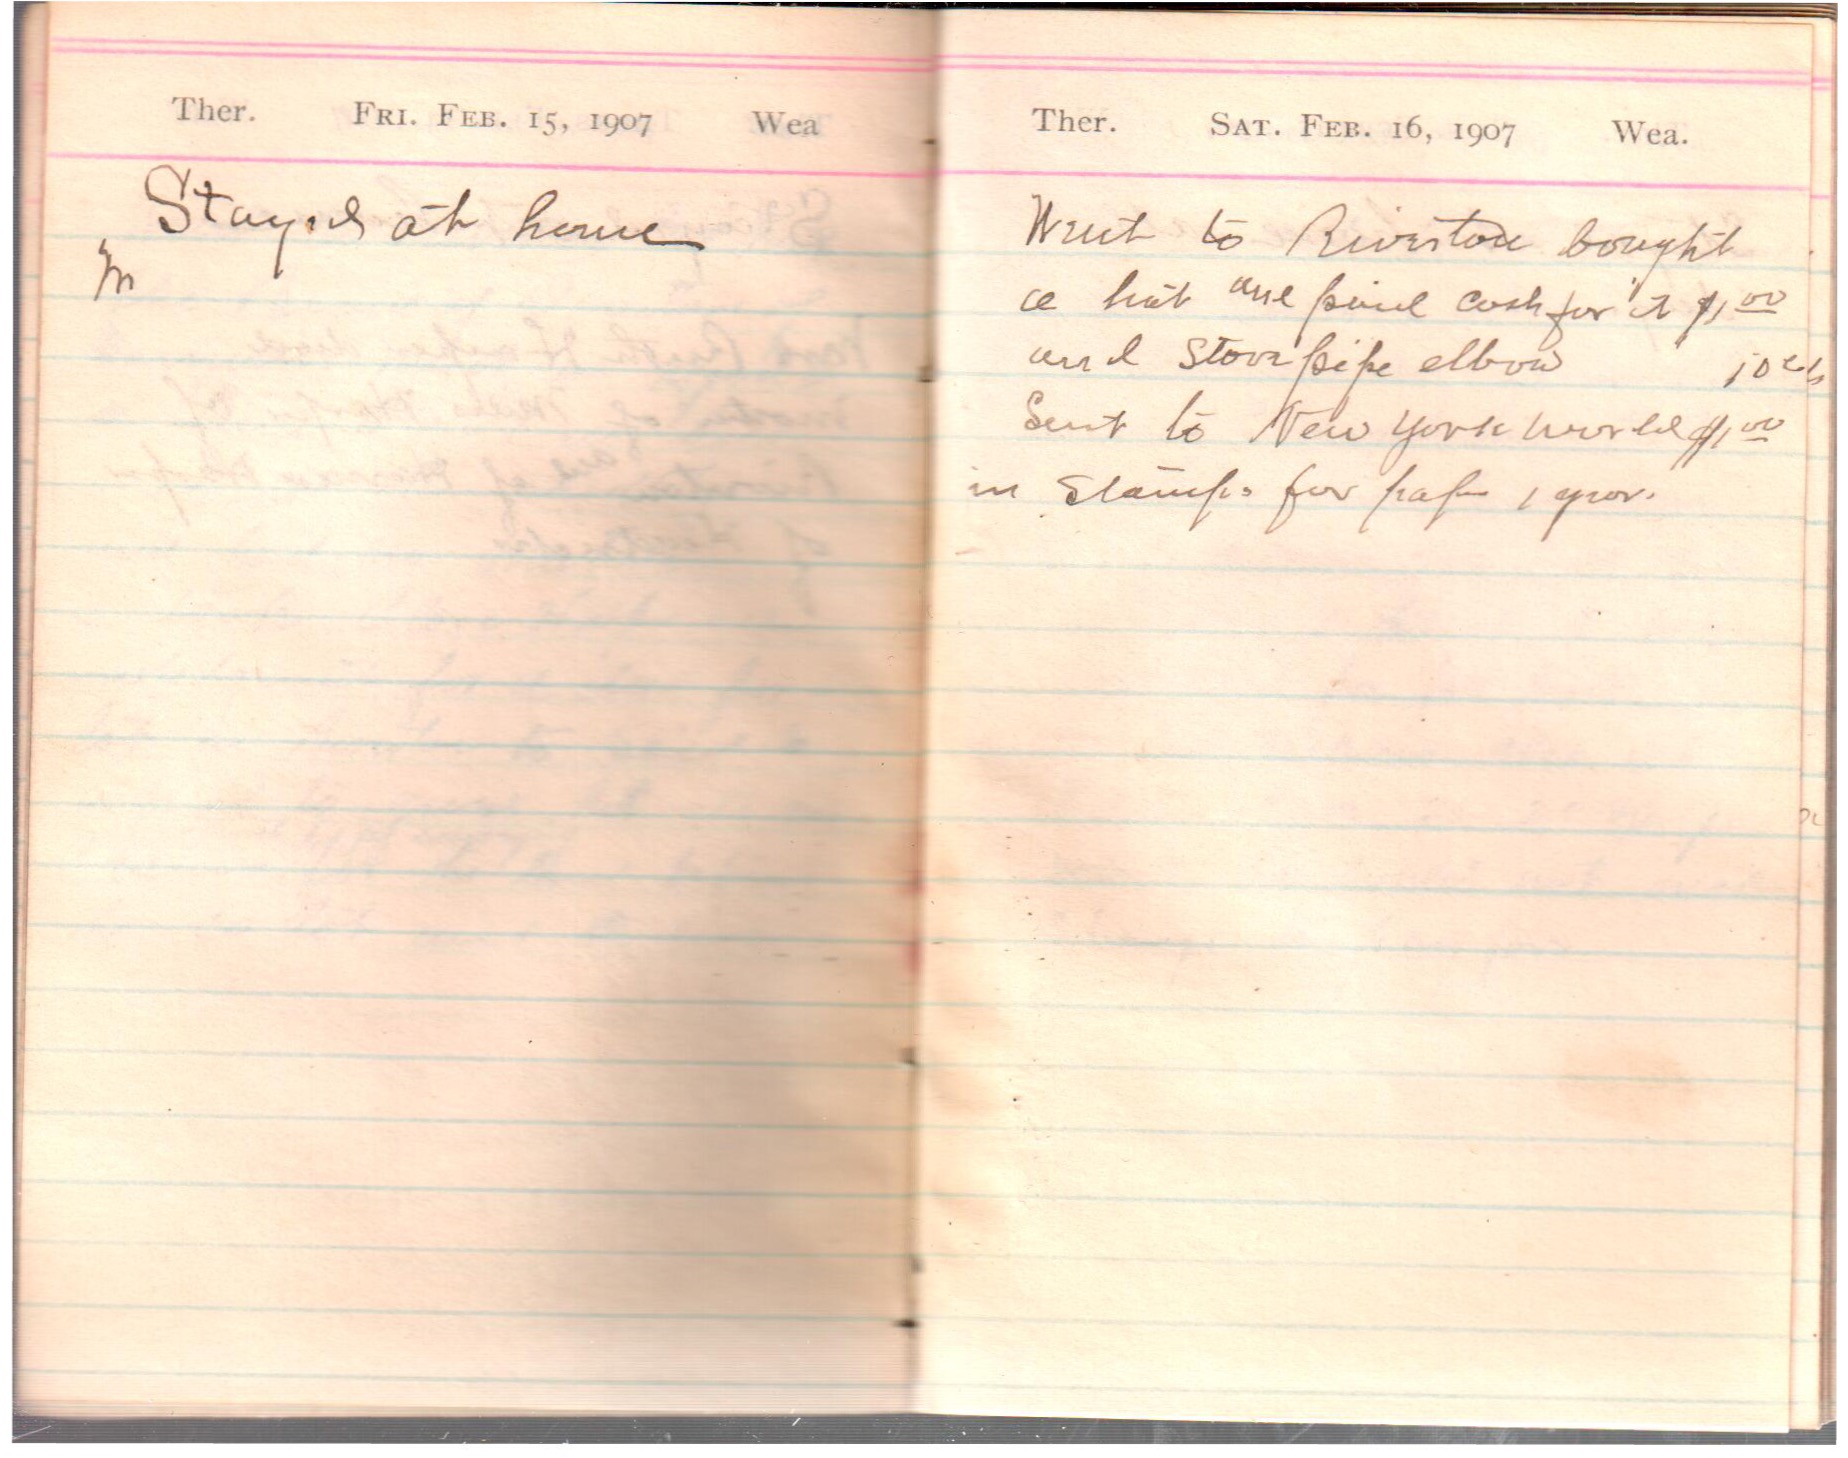 Ther. FRI. FEB. 15, 1907 Wea
Stayed at home
M
Ther. SAT. FEB. 16, 1907 Wea.
Went to Riverton bought
a hat and paid cash for it $1.00
and Stove pipe elbow 10 cts
Sent to New York World $1.00
in Stamps for paper 1 year.